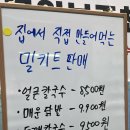 집에서 직접 만들어먹는
밀키트 판매
- 얼큰칼국수 - 8500원
- 매운 닭발 - 9,900원
- 들깨칼국수 - 9500원